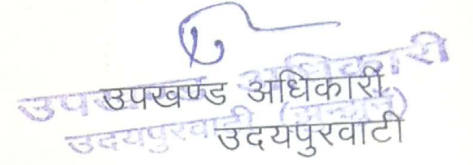 उपखण्ड अधिकारी
उदयपुरवाटी
उपखण्ड अधिकारी
उदयपुरवाटी (झुन्झुनूं)